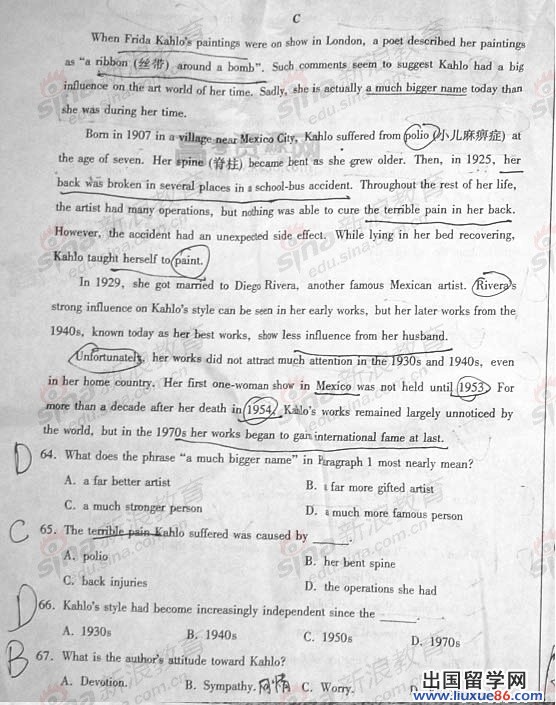 C
When Frida Kahlo's paintings were on show in London, a poet described her paintings
as "a ribbon (丝带) around a bomb". Such comments seem to suggest Kahlo had a big
influence on the art world of her time. Sadly, she is actually a much bigger name today than
she was during her time.
Born in 1907 in a village near Mexico City, Kahlo suffered from polio (小儿麻痹症) at
the age of seven. Her spine (脊柱) became bent as she grew older. Then, in 1925, her
back was broken in several places in a school-bus accident. Throughout the rest of her life,
the artist had many operations, but nothing was able to cure the terrible pain in her back.
However, the accident had an unexpected side effect. While lying in her bed recovering,
Kahlo taught herself to paint.
In 1929, she got married to Diego Rivera, another famous Mexican artist. Rivera's
strong influence on Kahlo's style can be seen in her early works, but her later works from the
1940s, known today as her best works, show less influence from her husband.
Unfortunately, her works did not attract much attention in the 1930s and 1940s, even
in her home country. Her first one-woman show in Mexico was not held until 1953. For
more than a decade after her death in 1954, Kahlo's works remained largely unnoticed by
the world, but in the 1970s her works began to gan international fame at last.
D 64. What does the phrase "a much bigger name" in Paragraph 1 most nearly mean?
A. a far better artist B. a far more gifted artist
C. a much stronger person D. a much more famous person
C 65. The terrible pain Kahlo suffered was caused by _____.
A. polio B. her bent spine
C. back injuries D. the operations she had
D 66. Kahlo's style had become increasingly independent since the _____.
A. 1930s B. 1940s C. 1950s D. 1970s
B 67. What is the author's attitude toward Kahlo?
A. Devotion. B. Sympathy. 同情 C. Worry. D
出国留学网
www.liuxue86.com
sina 新浪教育
edu.sina.com.cn